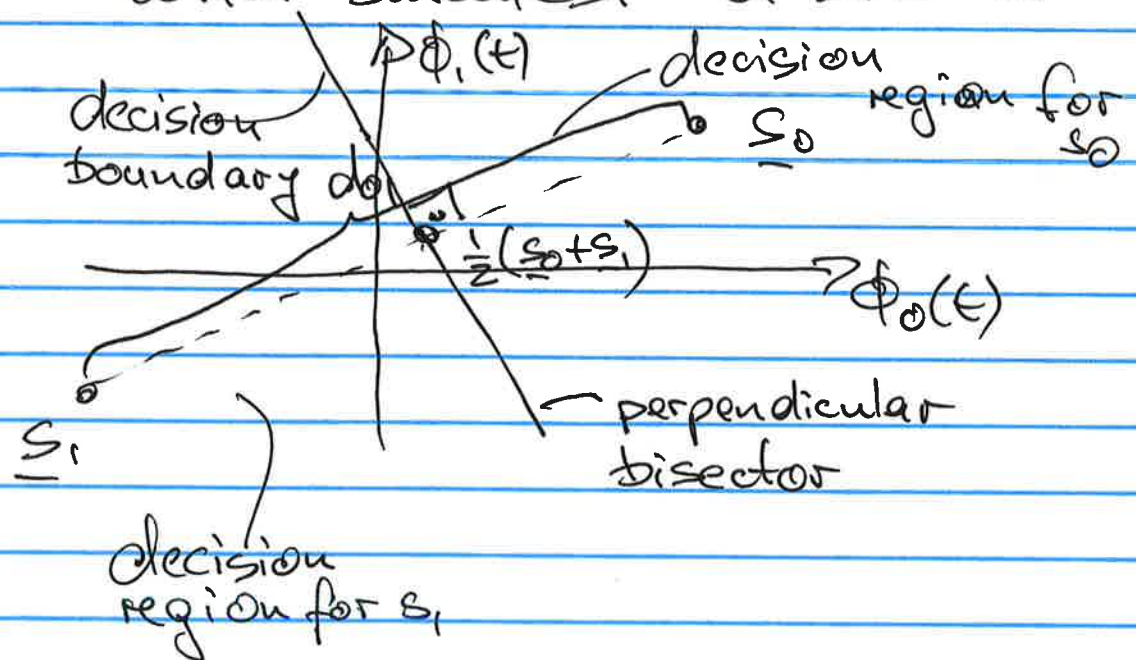 ϕ₁(t)
decision
region for
s0
decision
boundary
d01
S0
½(S0+S1)
ϕ0(t)
S1
perpendicular
bisector
decision
region for s1